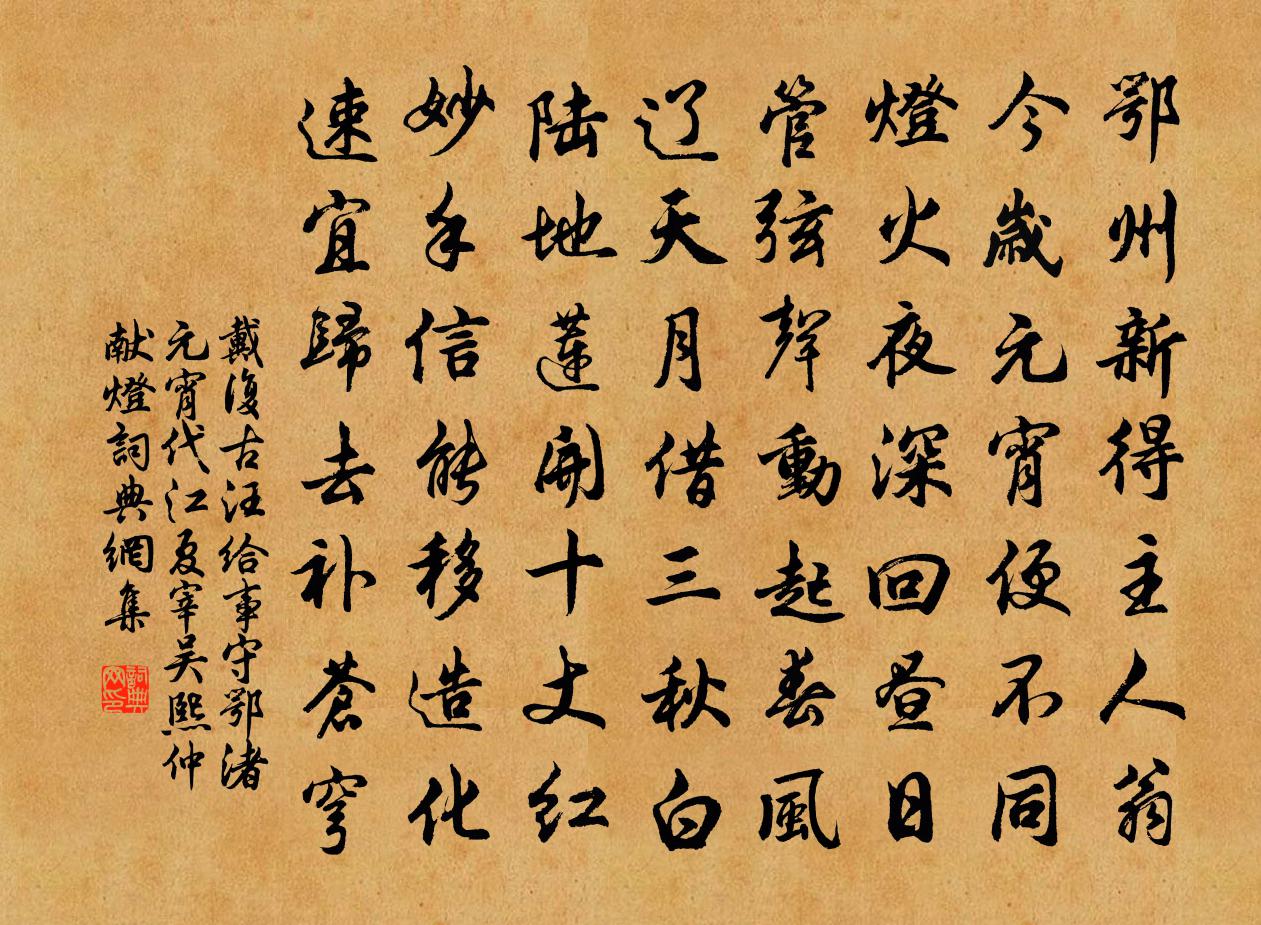 鄂州新得主人翁
今歲元宵便不同
燈火夜深回昼日
管弦聲動起春風
辽天月借三秋白
陆地蓮開十丈红
妙手信能移造化
速宜歸去补蒼穹
戴復古汪给事守鄂渚
元宵代江夏宰吴熙仲
献燈詞典網集
詞典网印